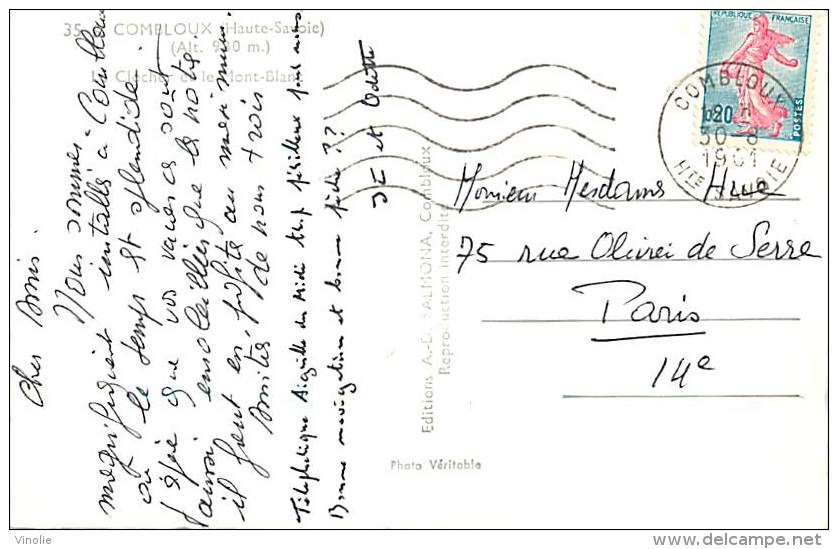 35 - COMBLOUX (Haute-Savoie)
(Alt. 980 m.)
Le Clocher et le Mont-Blanc
Chers Amis.
Nous sommes
magnifiquement installés à Combloux
où le temps est splendide.
J'espère que vos vacances sont
aussi ensoleillées que les nôtres.
il faut en profiter au maximum.
Amitiés de nous trois
Téléphérique Aiguille du Midi trop périlleux pour nous
Bonne navigation et bonne pêche ??
et Odette
Editions A.-D. SALMONA, Combloux
Reproduction interdite
Photo Véritable
REPUBLIQUE FRANÇAISE
0,20
POSTES
COMBLOUX
30-8
1961
HTE SAVOIE
Monsieur Mesdames
75 rue Olivier de Serre
Paris
14e
Vinolie
www.delcampe.net